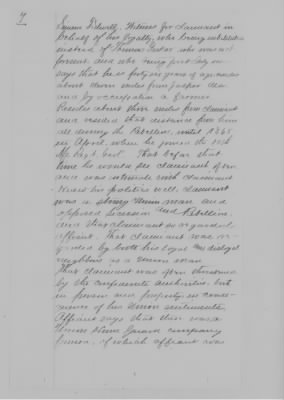 7
Squire Tidwell, Witness for claimant in
behalf of his loyalty, who being substituted
instead of Thomas who was not
present and who being first duly sworn
says that he is forty one years of age resides
about three miles from Jasper Ala
and by occupation a farmer
Resides about three miles from claimant
and resided that distance from him
all during the Rebellion, until 1865
in April, when he joined the 10th
That before that
time he would see claimant often
and was intimate with claimant
his politics well. claimant
was a strong Union man and
opposed secession and Rebellion
and that claimant so regarded
affiant, that claimant was re-
garded by both his loyal and disloyal
neighbors as a Union man
That claimant was often threatened
by the confederate authorities both
in person and property in conse-
quence of his Union sentiments
Affiant says that there was a
Union Home Guard company
of which affiant was